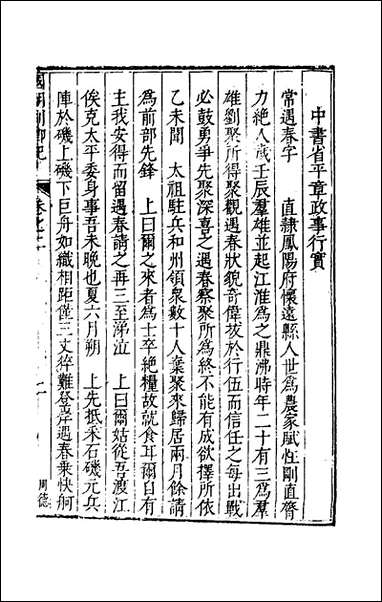 中書省平章政事行實
常遇春字　直隷鳳陽府懷遠縣人世爲農家賦性剛直膂
力絶人歲壬辰羣雄並起江淮爲之鼎沸時年二十有三爲羣
雄劉聚所得聚觀遇春狀貌奇偉拔於行伍而信任之每出戰
必鼓勇爭先聚深喜之遇春察聚所爲終不能有成欲擇所依
乙未聞　太祖駐兵和州領衆數十人棄聚來歸居兩月餘請
爲前部先鋒　上曰爾之來者爲士卒絶糧故就食耳爾自有
主我安得而留遇春請之再三至涕泣　上曰爾姑從吾渡江
俟克太平委身事吾未晚也夏六月朔　上先抵釆石磯元兵
陣於磯上磯下巨舟如織相距僅三丈猝難登岸遇春乗快舸
周德